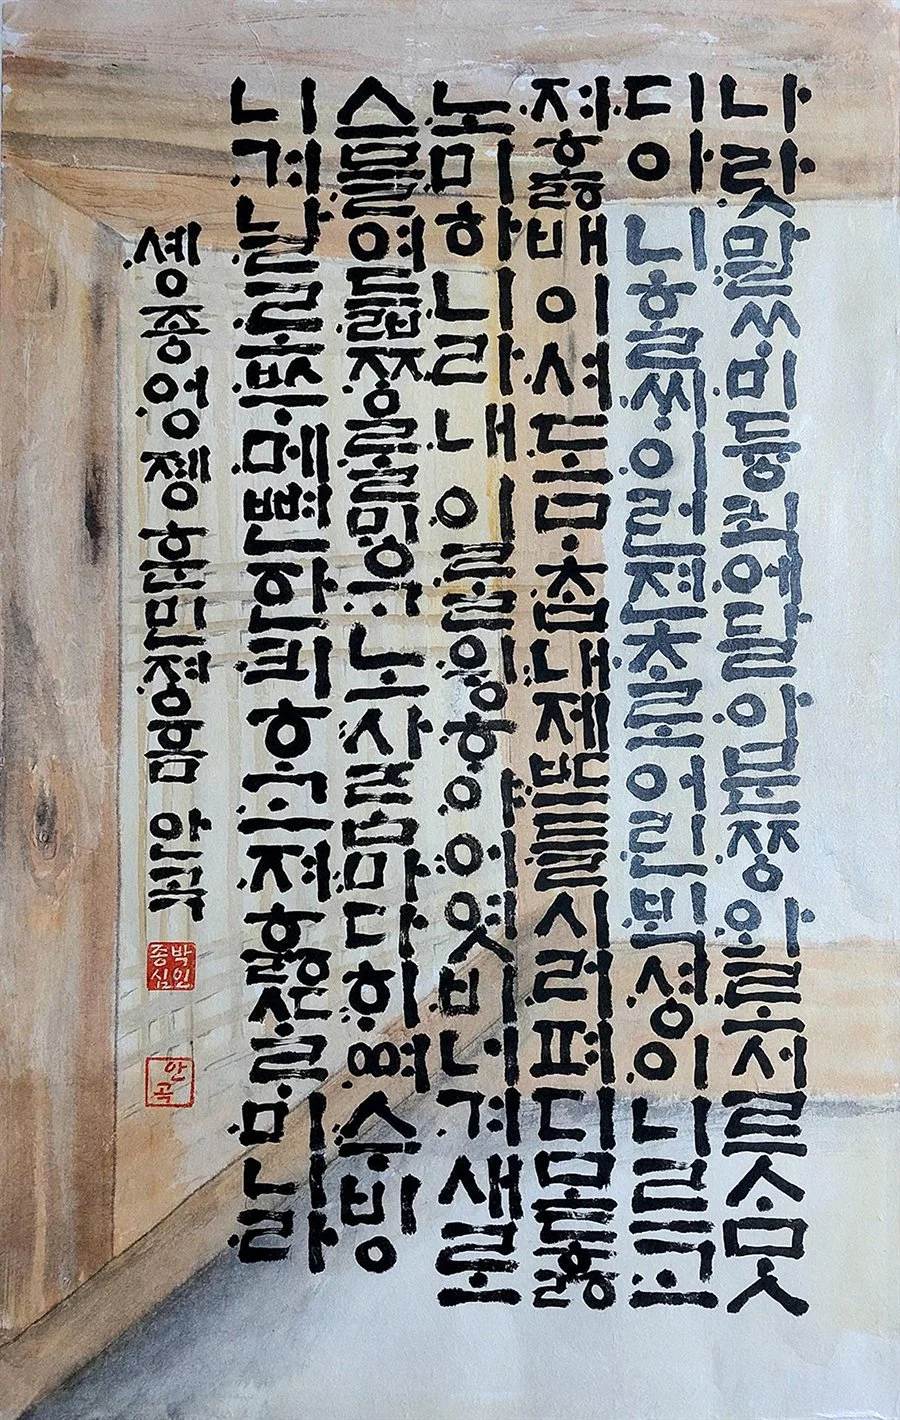 나랏말ᄊᆞ미듕귁에달아문ᄍᆞᆼ와로서르ᄉᆞᄆᆞᆺ
디아니ᄒᆞᆯᄊᆡ이런젼ᄎᆞ로어린ᄇᆡᆨ셩이니르고
져ᄒᆞᇙ배이셔도ᄆᆞᄎᆞᆷ내제ᄠᅳ들시러펴디몯ᄒᆞᇙ
노미하니라내이ᄅᆞᆯ윙ᄒᆞ야어엿비너겨새로
스믈여듧ᄍᆞᆼᄅᆞᆯᄆᆡᇰᄀᆞ노사ᄅᆞᆷ마다ᄒᆡᅇᅧ수ᄫᅵ
니겨날로ᄡᅮ메뼌ᅙᅡᆫ킈ᄒᆞ고져ᄒᆞᇙᄯᆞᄅᆞ미니라
솅종엉졩훈민졍ᅙᅳᆷ 안곡
박인종심
안곡